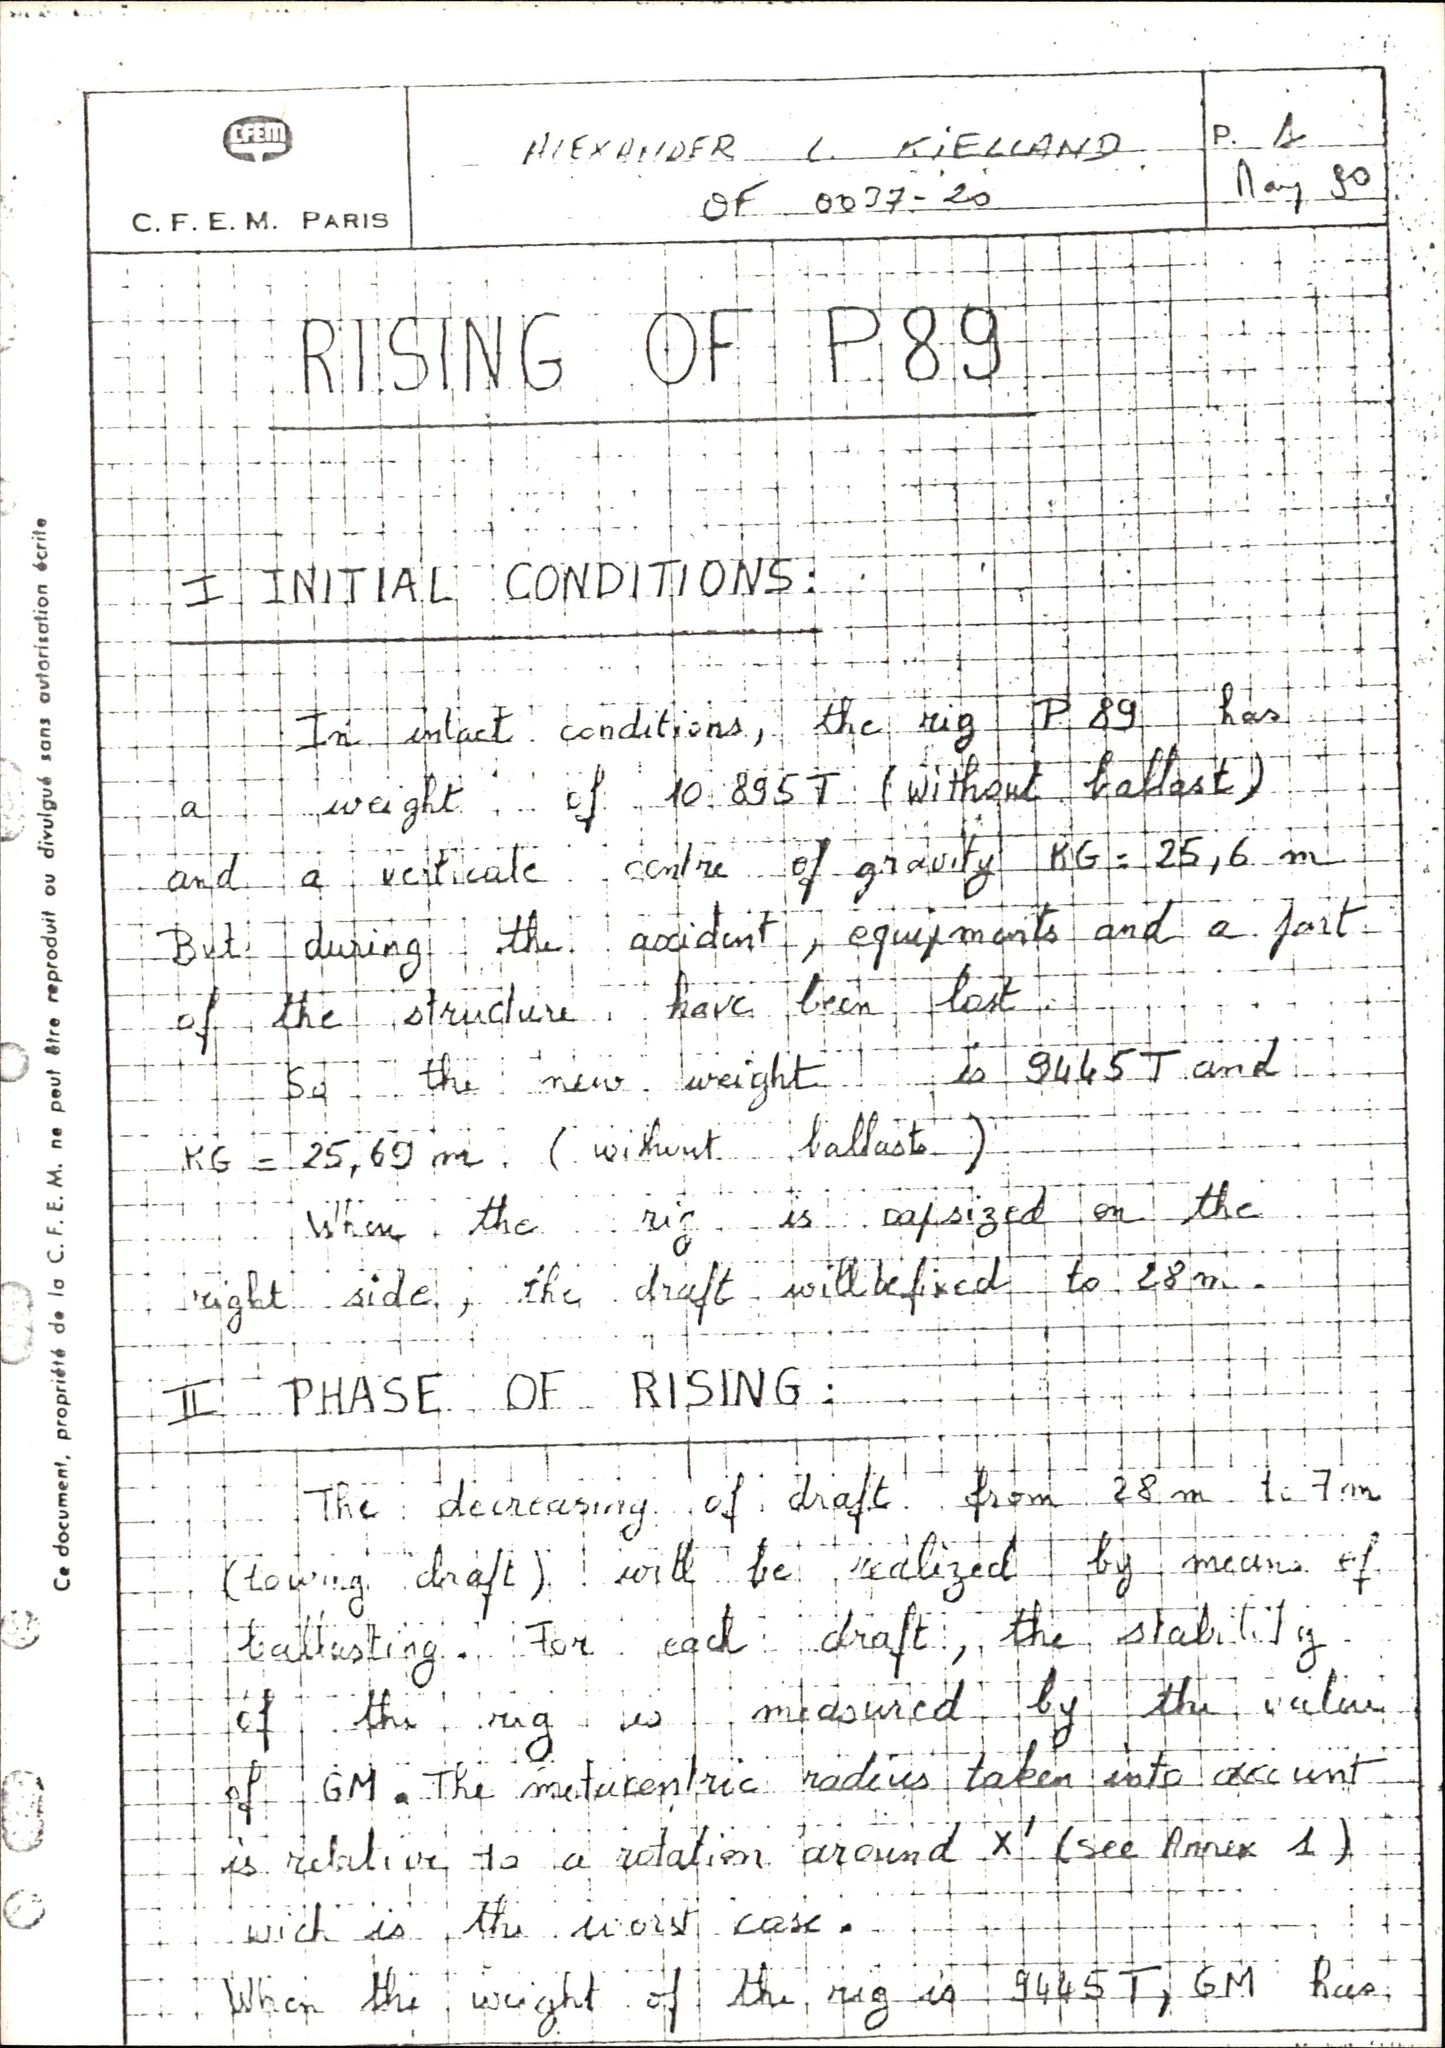 CFEM
C. F. E. M. PARIS
ALEXANDER L. KIELLAND
OF 0037-20
P. 1
May 80
RISING OF P89
I INITIAL CONDITIONS:
In intact conditions, the rig P 89 has
a weight of 10 895 T (without ballast)
and a verticale centre of gravity KG = 25,6 m
But during the accident, equipments and a part
of the structure have been lost.
So the new weight is 9445 T and
KG = 25,69 m. (without ballasts)
When the rig is capsized on the
right side, the draft will be fixed to 28 m.
II PHASE OF RISING:
The decreasing of draft from 28 m to 7 m
(towing draft) will be realized by means of
ballasting. For each draft, the stability
of the rig is measured by the value
of GM. The metacentric radius taken into account
is relative to a rotation around X' (see Annex 1)
wich is the worst case.
When the weight of the rig is 9445 T, GM has
Ce document, propriété de la C. F. E. M. ne peut être reproduit ou divulgué sans autorisation écrite